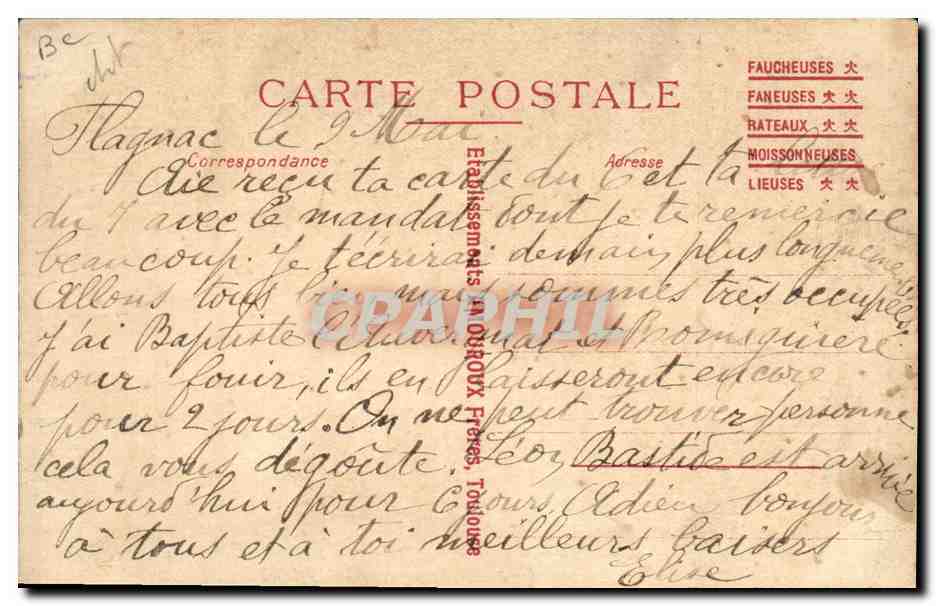 Bc
CARTE POSTALE
FAUCHEUSES ★
FANEUSES ★ ★
RATEAUX ★ ★
MOISSONNEUSES
LIEUSES ★ ★
Flagnac le 9 Mai
Correspondance
Adresse
Etablissements Frères, Toulouse
CPAPHIL
Aie reçu ta carte du 6 et ta
du 7 avec le mandat dont je te remercie
beaucoup. Je t'écrirai demain plus longuement
Allons tous bien mais sommes très occupées.
J'ai Baptiste et Romiguière
pour fouir, ils en laisseront encore
pour 2 jours. On ne peut trouver personne
cela vous dégoûte. Léon Bastide est arrivé
aujourd'hui pour 6 jours. Adieu bonjour
à tous et à toi meilleurs baisers
Elise